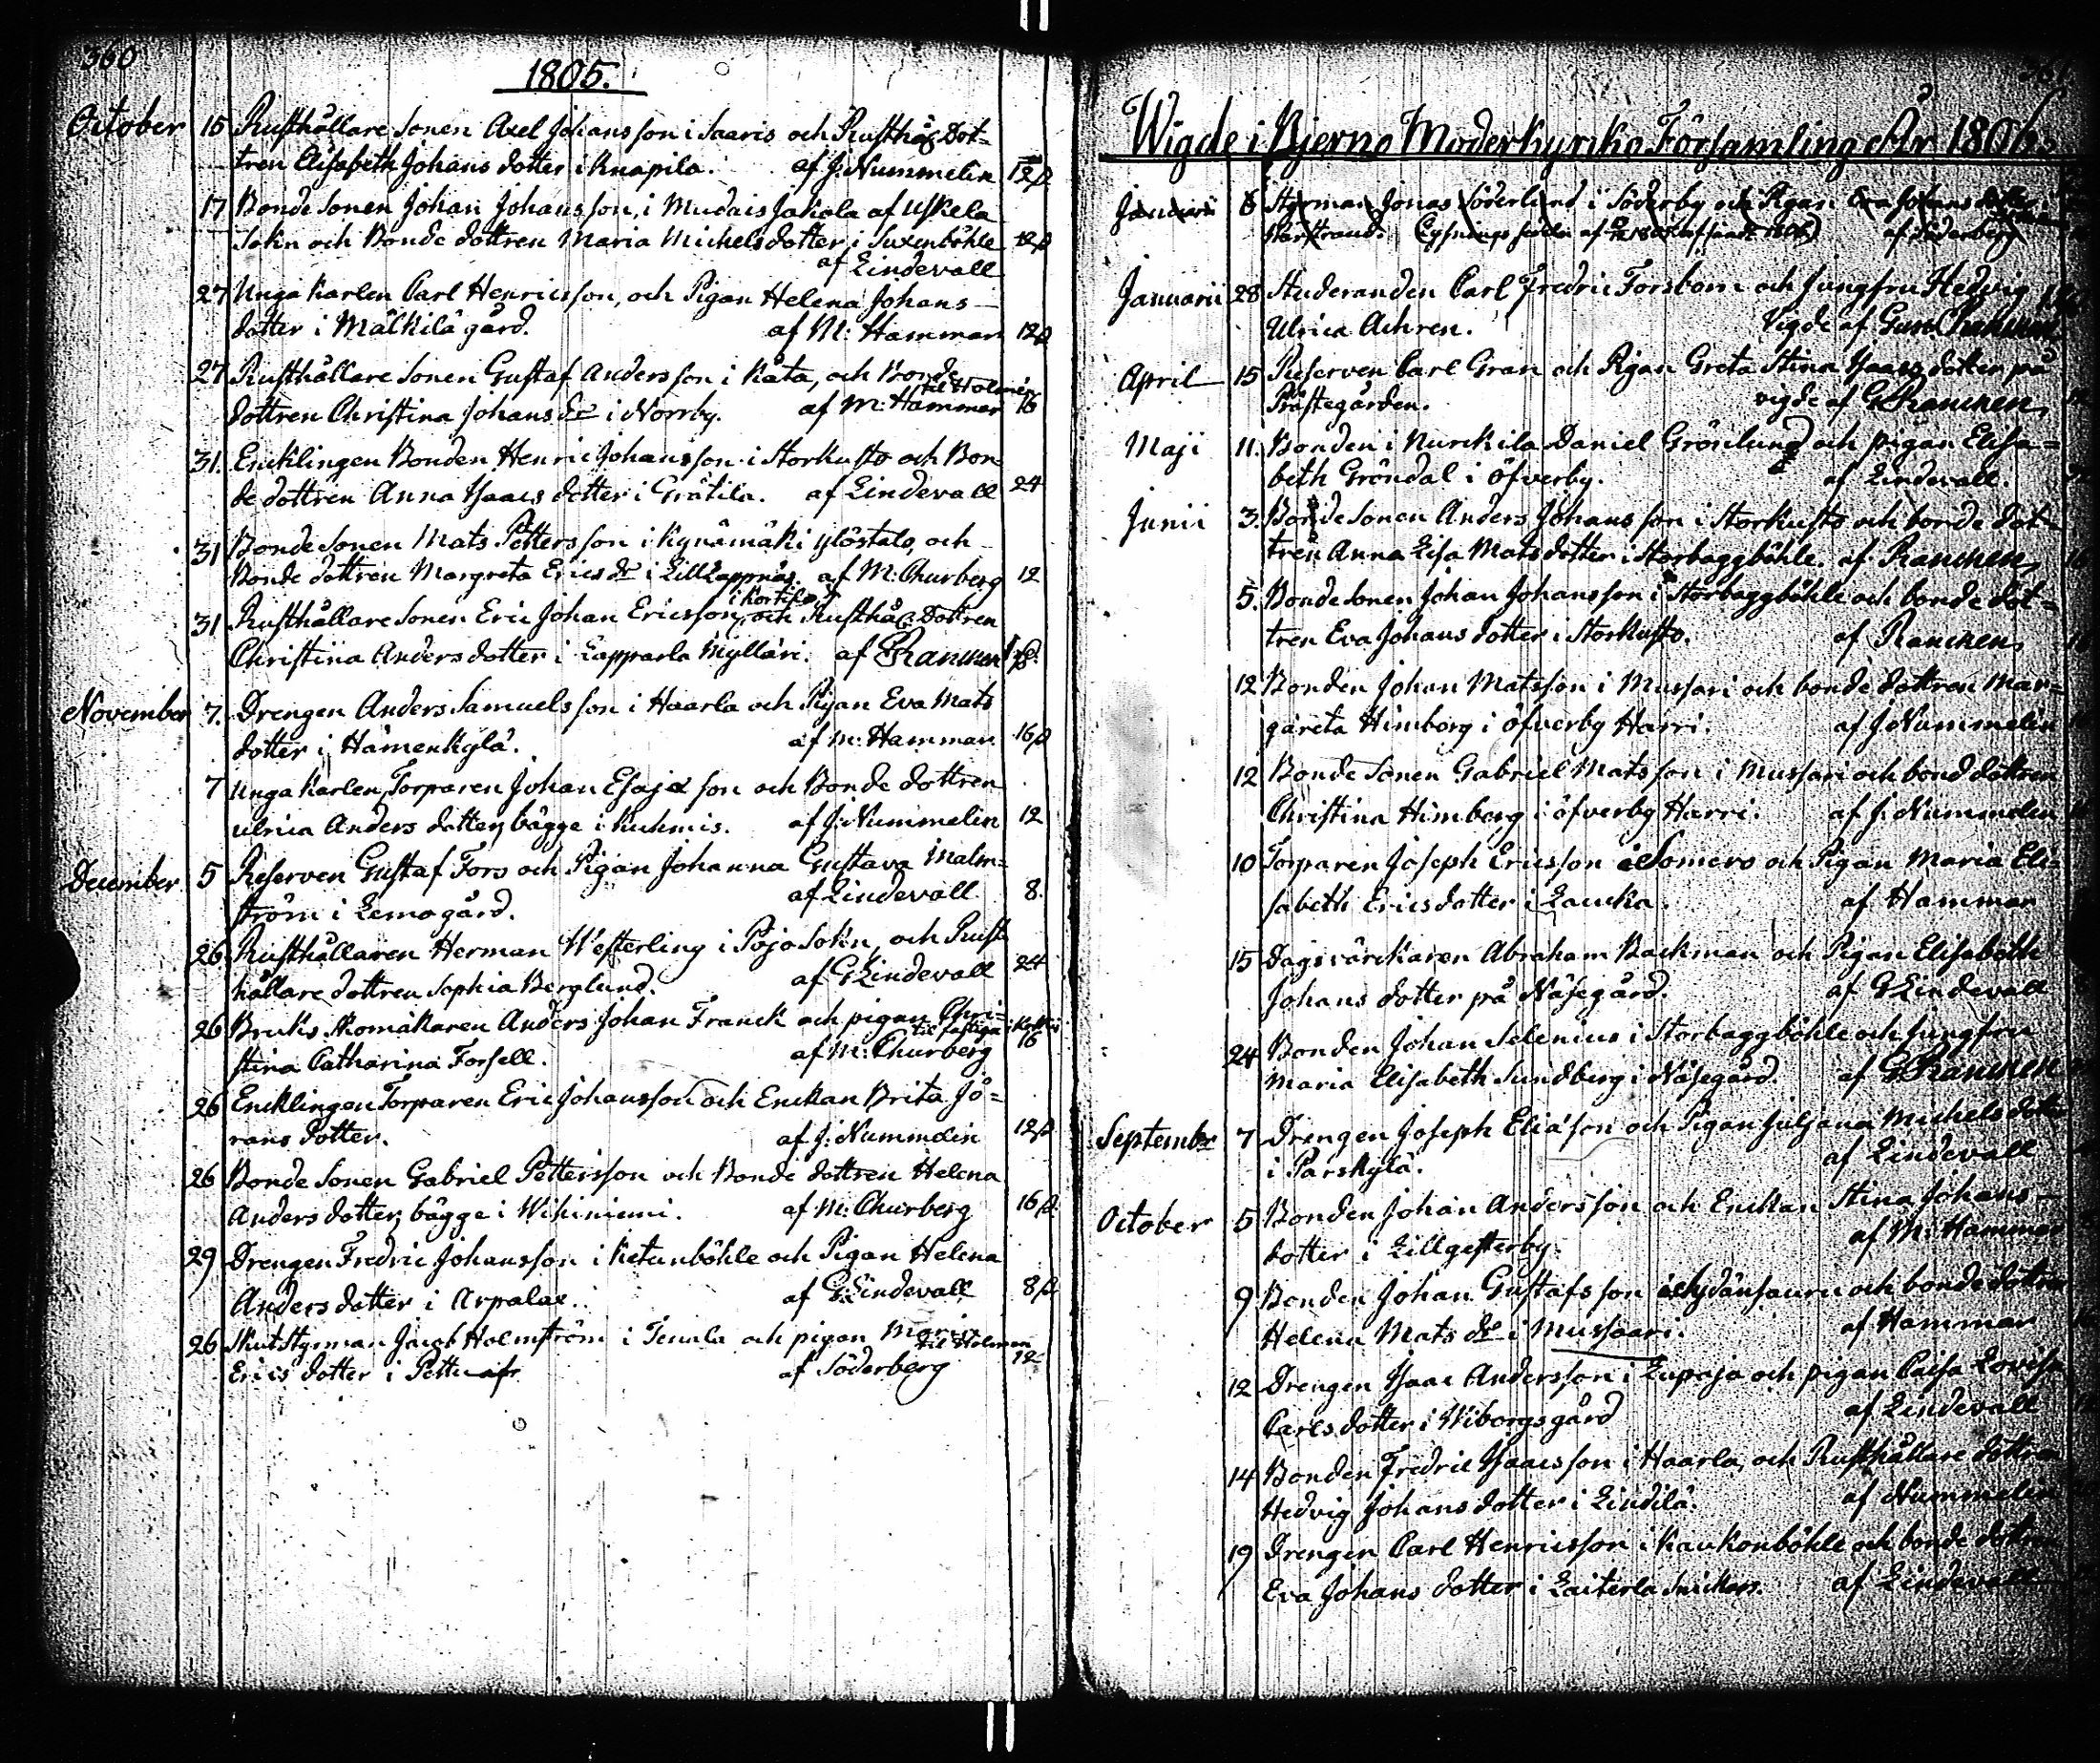 360
1805.
October 15 Rusthållare Sonen Axel Johansson i Saaris och Rusthåll: Dot-
tren Elisabeth Johans dotter i Knapila. af J: Nummelin 12 β
17 Bonde Sonen Johan Johansson, i Mudais Jakola af Uskela
Sokn och Bonde dottren Maria Michelsdotter i Suxenböhle 12 β
af Lindevall
27 Unga Karlen Carl Henricsson, och Pigan Helena Johans-
dotter i Mälkilä gård. af M: Hammar 12 β
27 Rusthållare Sonen Gustaf Andersson i Kata, och Bonde
til Holmen
dottren Christina Johans dr i Norrby. af M: Hammar 16
31. Encklingen Bonden Henric Johansson i Storkusto och Bon
de dottren Anna Isaacs dotter i Grätila. af Lindevall 24
31 Bonde Sonen Mats Pettersson i Kynämäki ylöstalo, och
Bonde dottren Margreta Erics dr i Lill Lappnäs. af M: Churberg 12
i Kortila
31 Rusthållare Sonen Eric Johan Ericsson, och Rusthåll: Dottren
Christina Anders dotter i Lapparla Mylläri. af Rancken
November 7. Drengen Anders Samuelsson i Haarla och Pigan Eva Mats
dotter i Hämenkylä. af M: Hammar 16 β
7 Unga Karlen, Torparen Johan Esajæ son och Bonde dottren
Ulrica Anders dotter, bägge i Kuhmis. af J: Nummelin 12
December 5 Reserven Gustaf Fors och Pigan Johanna Gustava Malm=
ström i Lemo gård. af Lindevall 8.
26 Rusthållaren Herman Westerling i Pojo Sokn, och Rust
hållare dottren Sophia Berglund. af G Lindevall 24
26 Bruks Skomakaren Anders Johan Franck och pigan Chri=
til fattiga
stina Catharina Forsell. af M: Churberg 16
26 Encklingen Torparen Eric Johansson och Enckan Brita Jö=
rans dotter. af J: Nummelin 12 β
26 Bonde Sonen Gabriel Pettersson och Bonde dottren Helena
Anders dotter, bägge i Wihiniemi. af M: Churberg 16 β.
29 Drengen Fredric Johansson i Ketunböhle och Pigan Helena
Anders dotter i Arpalax. af G Lindevall 8 β
26 Skut Styrman Jacob Holmström i Tenala och pigan Maria
til Holmen
Erics dotter i Pettu af Söderberg 12
361
Wigde i Bjerno Moderkyrko Församling År 1806.
Januarii 6 Styrman Jonas Söderlund i Söderby och Pigan Eva Johans dotter i
Norstrand. af Söderberg
Januarii 28 Studeranden Carl Fredric Forsbom och Jungfru Hedvig
Ulrica Achren. Vigde af Gust. Rancken
April 15 Reserven Carl Gran och Pigan Greta Stina Isaacs dotter på
Prästegården. vigde af G Rancken
Maji 11. Bonden i Nurckila Daniel Grönlund och pigan Elisa=
beth Gröndal i Öfverby. af Lindevall.
Junii 3. Bonde Sonen Anders Johansson i Storkusto och bonde dot-
tren Anna Lisa Matsdotter i Storbaggböhle. af Rancken
5. Bonde Sonen Johan Johansson i Storbaggböhle och bonde dot=
tren Eva Johans dotter i Storkusto. af Rancken
12 Bonden Johan Matsson i Mussari och bonde dottren Mar=
gareta Himborg i Öfverby Harri. af J Nummelin
12 Bonde Sonen Gabriel Matsson i Mussari och bond dottren
Christina Himberg i Öfverby Harri. af J: Nummelin
10 Torparen Joseph Ericsson i Somero och Pigan Maria Eli=
sabeth Erics dotter i Laucka. af Hammar
15 Dagsvärckaren Abraham Backman och Pigan Elisabeth
Johans dotter på Näsegård. af G Lindevall
24 Bonden Johan Selenius i Storbaggböhle och Jungfru
Maria Elisabeth Sundberg i Näsegård. af G Rancken
Septembr 7 Drengen Joseph Eliæson och Pigan Juljana Michels dotter
i Pärskylä. af Lindevall
October 5 Bonden Johan Andersson och Enckan Stina Johans-
dotter i Lillgesterby. af M: Hammar
9 Bonden Johan Gustafsson och bonde dottren
Helena Mats dr i Mussaari. af Hammar
12 Drengen Isaac Andersson i Lupaja och pigan Caisa Lovisa
Carls dotter i Wiborgsgård af Lindevall
14 Bonden Fredric Isaacsson i Haarla, och Rusthållare dottren
Hedvig Johans dotter i Lindilä. af Nummelin
19 Drengen Carl Henricsson i Kaukonböhle och bonde dottren
Eva Johans dotter i Laiterla Snickars. af Lindevall